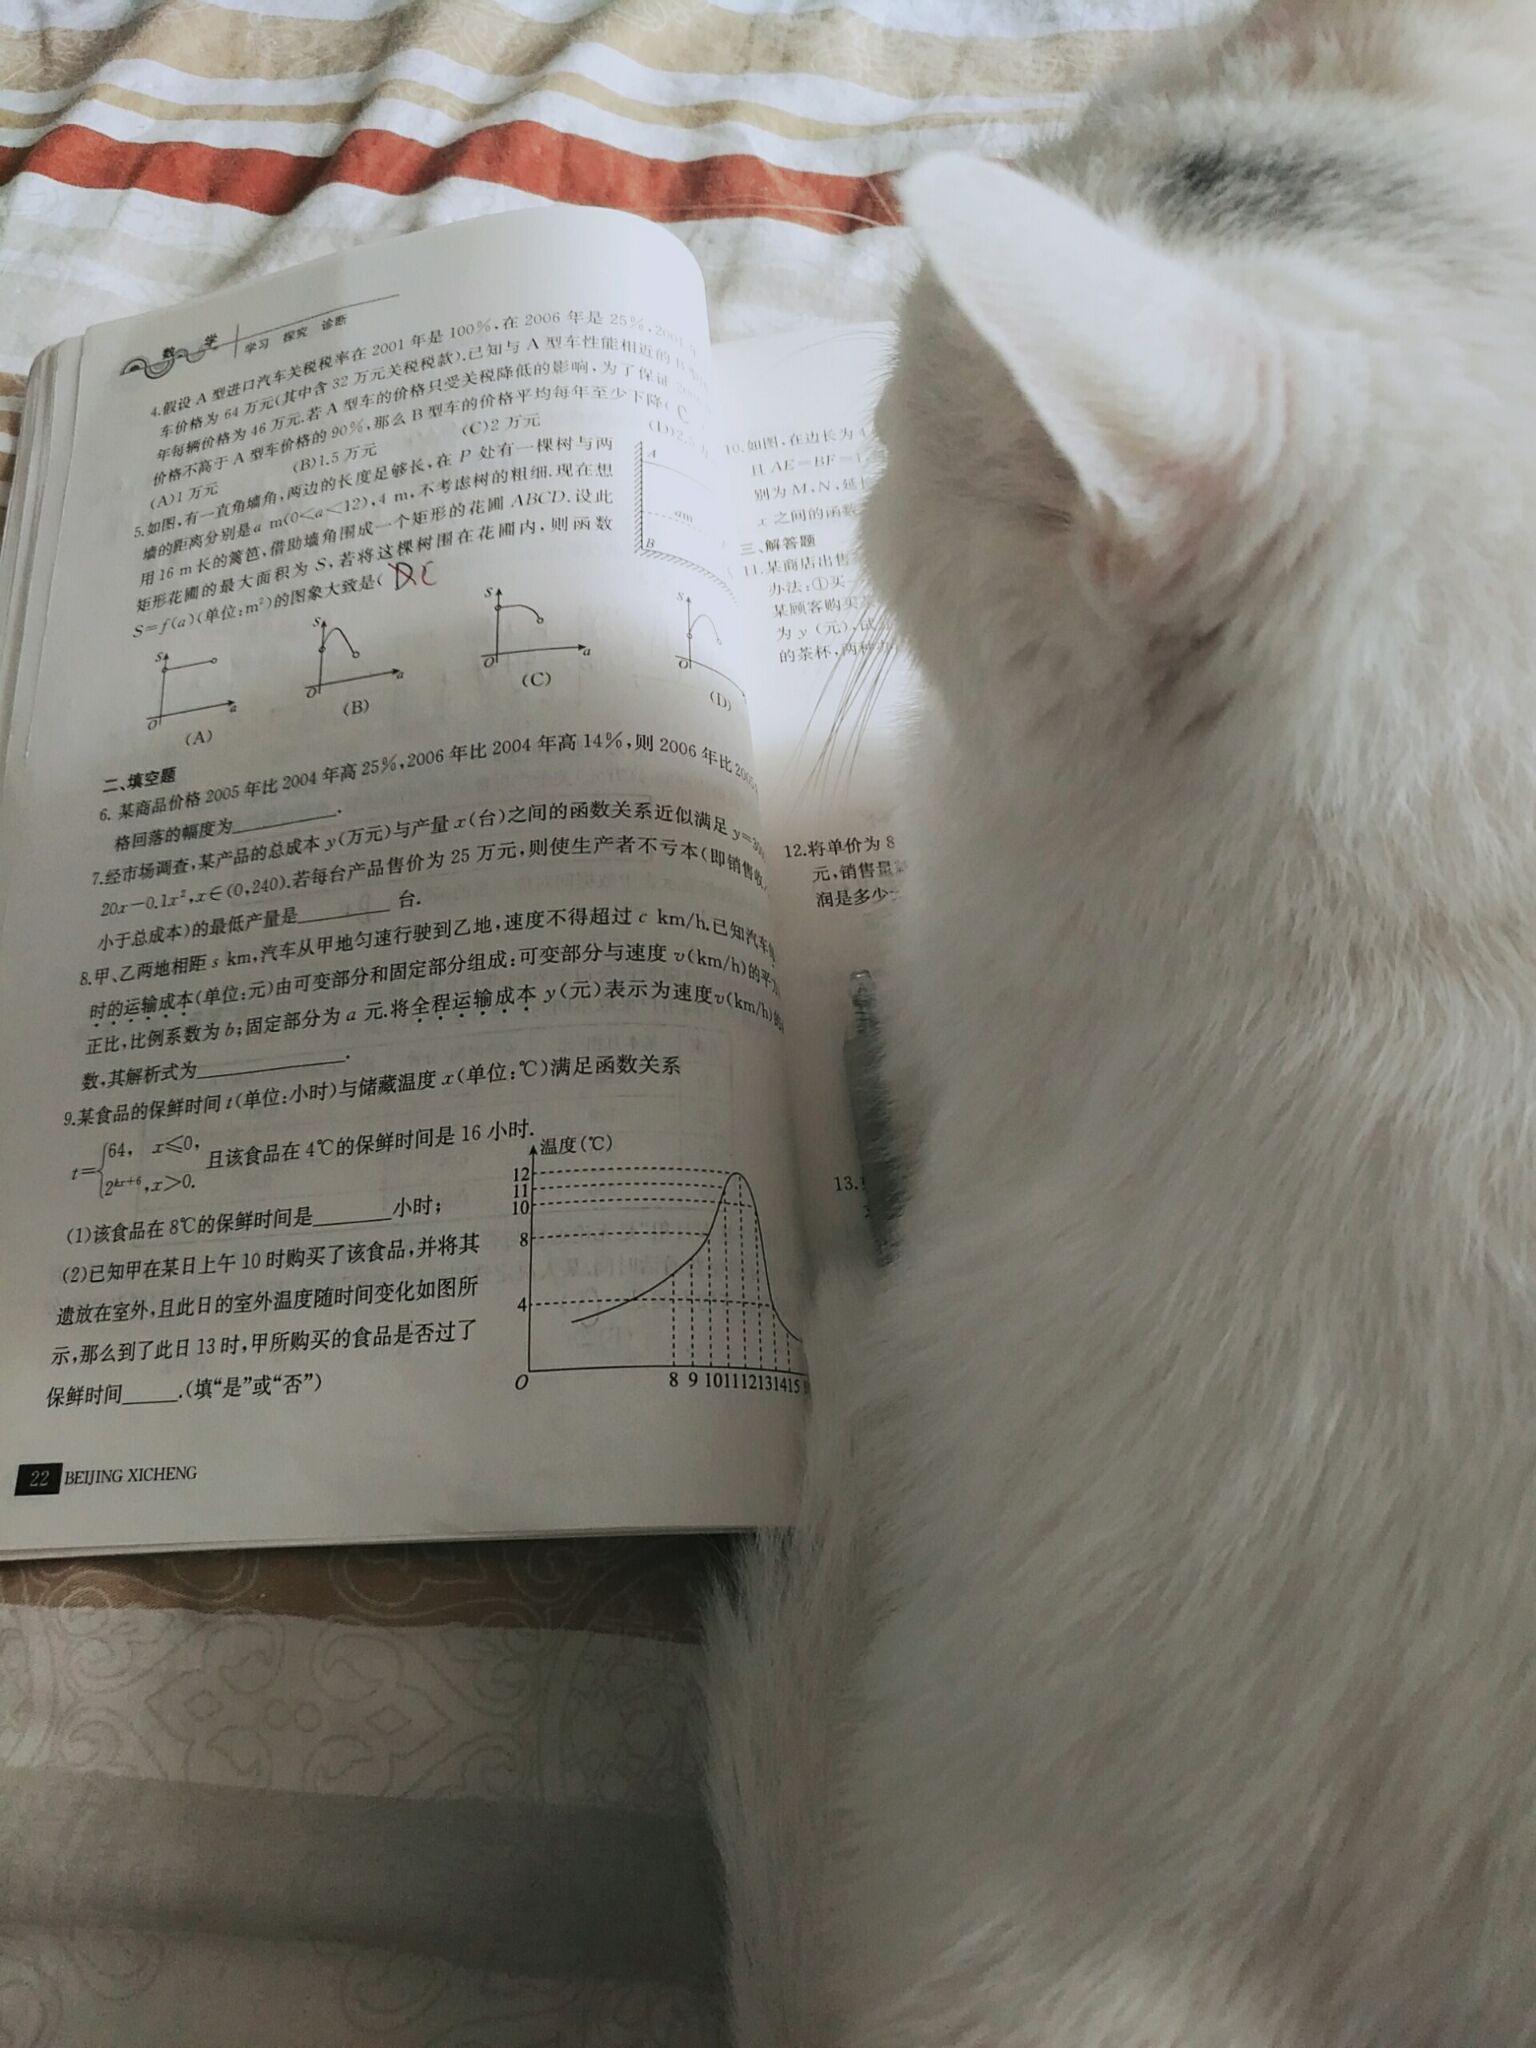 数学 学习 探究 诊断
4.假设A型进口汽车关税税率在2001年是100%,在2006年是25%,2001年
车价格为64万元(其中含32万元关税税款).已知与A型车性能相近的B型
年每辆价格为46万元.若A型车的价格只受关税降低的影响,为了保证
价格不高于A型车价格的90%,那么B型车的价格平均每年至少下降( C
(A)1万元 (B)1.5万元 (C)2万元 (D)2.5万
5.如图,有一直角墙角,两边的长度足够长,在P处有一棵树与两
墙的距离分别是a m(0<a<12),4 m,不考虑树的粗细.现在想
用16 m长的篱笆,借助墙角围成一个矩形的花圃ABCD.设此
矩形花圃的最大面积为S,若将这棵树围在花圃内,则函数
S=f(a)(单位:m²)的图象大致是( C
A
am
B
S O a
(A)
S O a
(B)
S O a
(C)
S O
(D)
二、填空题
6. 某商品价格2005年比2004年高25%,2006年比2004年高14%,则2006年比2005
格回落的幅度为________.
7.经市场调查,某产品的总成本y(万元)与产量x(台)之间的函数关系近似满足y=300
20x-0.1x²,x∈(0,240).若每台产品售价为25万元,则使生产者不亏本(即销售收
小于总成本)的最低产量是________台.
8.甲、乙两地相距s km,汽车从甲地匀速行驶到乙地,速度不得超过c km/h.已知汽车
时的运输成本(单位:元)由可变部分和固定部分组成:可变部分与速度v(km/h)的平方
正比,比例系数为b;固定部分为a元.将全程运输成本y(元)表示为速度v(km/h)的
数,其解析式为________.
9.某食品的保鲜时间t(单位:小时)与储藏温度x(单位:℃)满足函数关系
t={64, x≤0,
2^{kx+6},x>0.
且该食品在4℃的保鲜时间是16小时.
(1)该食品在8℃的保鲜时间是________小时;
(2)已知甲在某日上午10时购买了该食品,并将其
遗放在室外,且此日的室外温度随时间变化如图所
示,那么到了此日13时,甲所购买的食品是否过了
保鲜时间_____.(填“是”或“否”)
温度(℃)
12
11
10
8
4
O 8 9 10 11 12 13 14 15
22 BEIJING XICHENG
10.如图,在边长为4
且AE=BF=1
别为M,N,延长
x之间的函数
三、解答题
11.某商店出售
办法:①买一
某顾客购买
为y(元),试
的茶杯,两种办
12.将单价为8
元,销售量
润是多少
13.